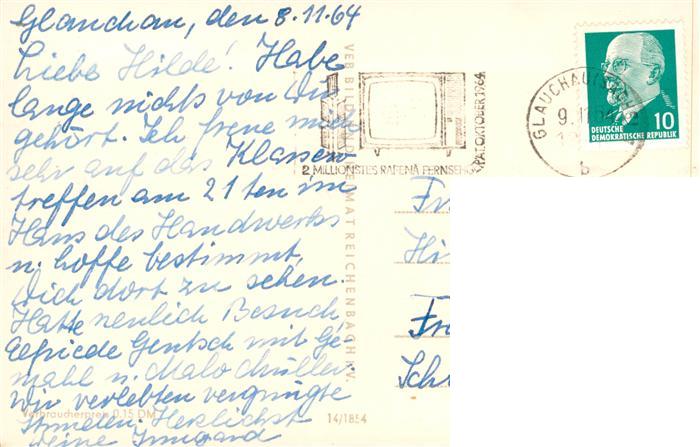 Glauchau, den 8.11.64
Liebe Hilde! Habe
lange nichts von Dir
gehört. Ich freue mich
sehr auf das Klassen
treffen am 21ten im
Haus des Handwerks
u. hoffe bestimmt,
Dich dort zu sehen.
Hatte neulich Besuch
Elfriede Gentsch mit Ge
mahl u.
Wir verlebten vergnügte
Stunden. Herzlichst
Deine Irmgard
Verbraucherpreis 0,15 DM
14/1854
VERB BILD HEIMAT REICHENBACH I. V.
2 MILLIONSTES RAFENA FERNSEH
OKTOBER 1964
GLAUCHAU
9.11.64
b
10
DEUTSCHE
DEMOKRATISCHE REPUBLIK
Fr
Hi
Fr
Sch